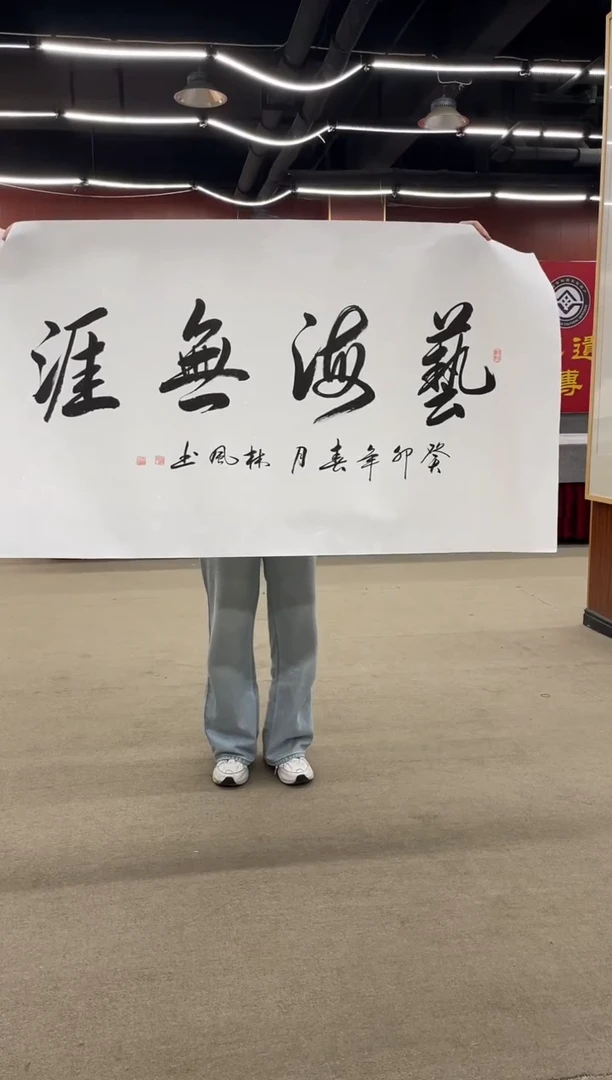 藝海無涯
癸卯年春月 林風书
遺
傳